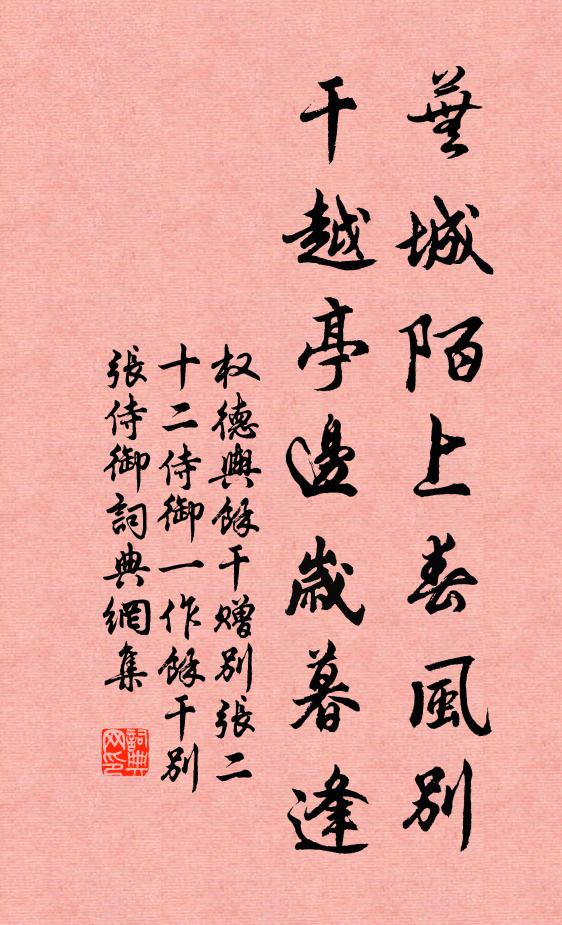 蕪城陌上春風別
干越亭邊歲暮逢
权德輿餘干贈別張二
十二侍御一作餘干別
張侍御詞典網集
詞典
网印